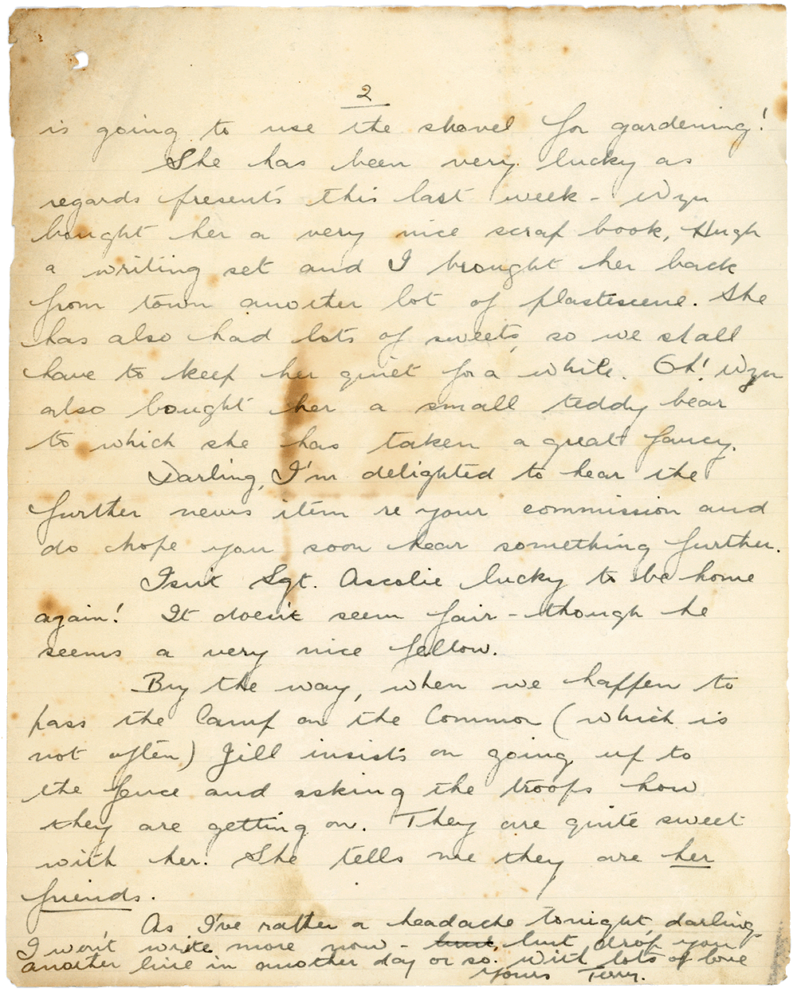 2
is going to use the shovel for gardening!
She has been very lucky as
regards presents this last week - Wyn
bought her a very nice scrap book, Hugh
a writing set and I brought her back
from town another lot of plastescene. She
has also had lots of sweets, so we shall
have to keep her quiet for a while. Oh! Wyn
also bought her a small teddy bear
to which she has taken a great fancy.
Darling, I'm delighted to hear the
further news item re your commission and
do hope you soon hear something further.
Isn't Sgt. Ascolie lucky to be home
again! It doesn't seem fair - though he
seems a very nice fellow.
By the way, when we happen to
pass the Camp on the Common (which is
not often) Jill insists on going up to
the fence and asking the troops how
they are getting on. They are quite sweet
with her. She tells me they are her
friends.
As I've rather a headache tonight, darling,
I won't write more now - but, but drop you
another line in another day or so. With lots of love
Yours Terry.